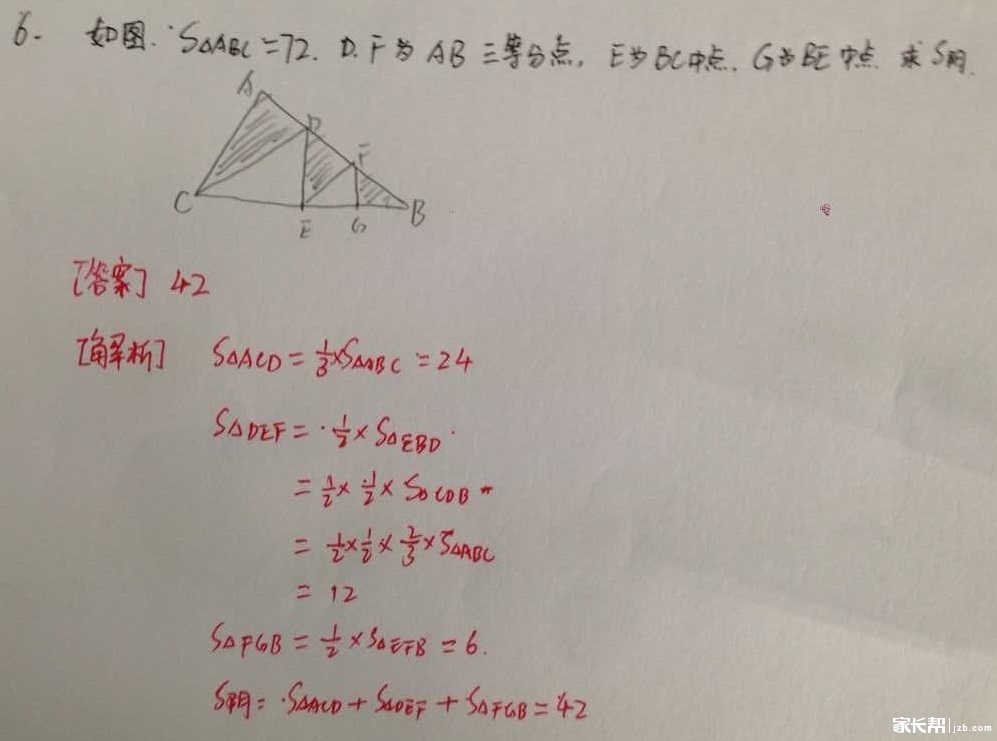 6. 如图. S△ABC=72. D.F为AB三等分点, E为BC中点. G为BE中点 求S阴.
A
D
F
C
E
G
B
[答案] 42
[解析] S△ACD = 1/3 × S△ABC = 24
S△DEF = 1/2 × S△EBD
= 1/2 × 1/2 × S△CDB
= 1/2 × 1/2 × 2/3 × S△ABC
= 12
S△FGB = 1/2 × S△EFB = 6.
S阴 = S△ACD + S△DEF + S△FGB = 42
家长帮 jzb.com